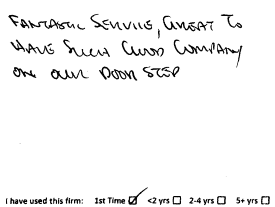 FANTASTIC SERVICE, GREAT TO
HAVE SUCH GOOD COMPANY
ON OUR DOOR STEP
I have used this firm: 1st Time ☑ <2 yrs ☐ 2-4 yrs ☐ 5+ yrs ☐